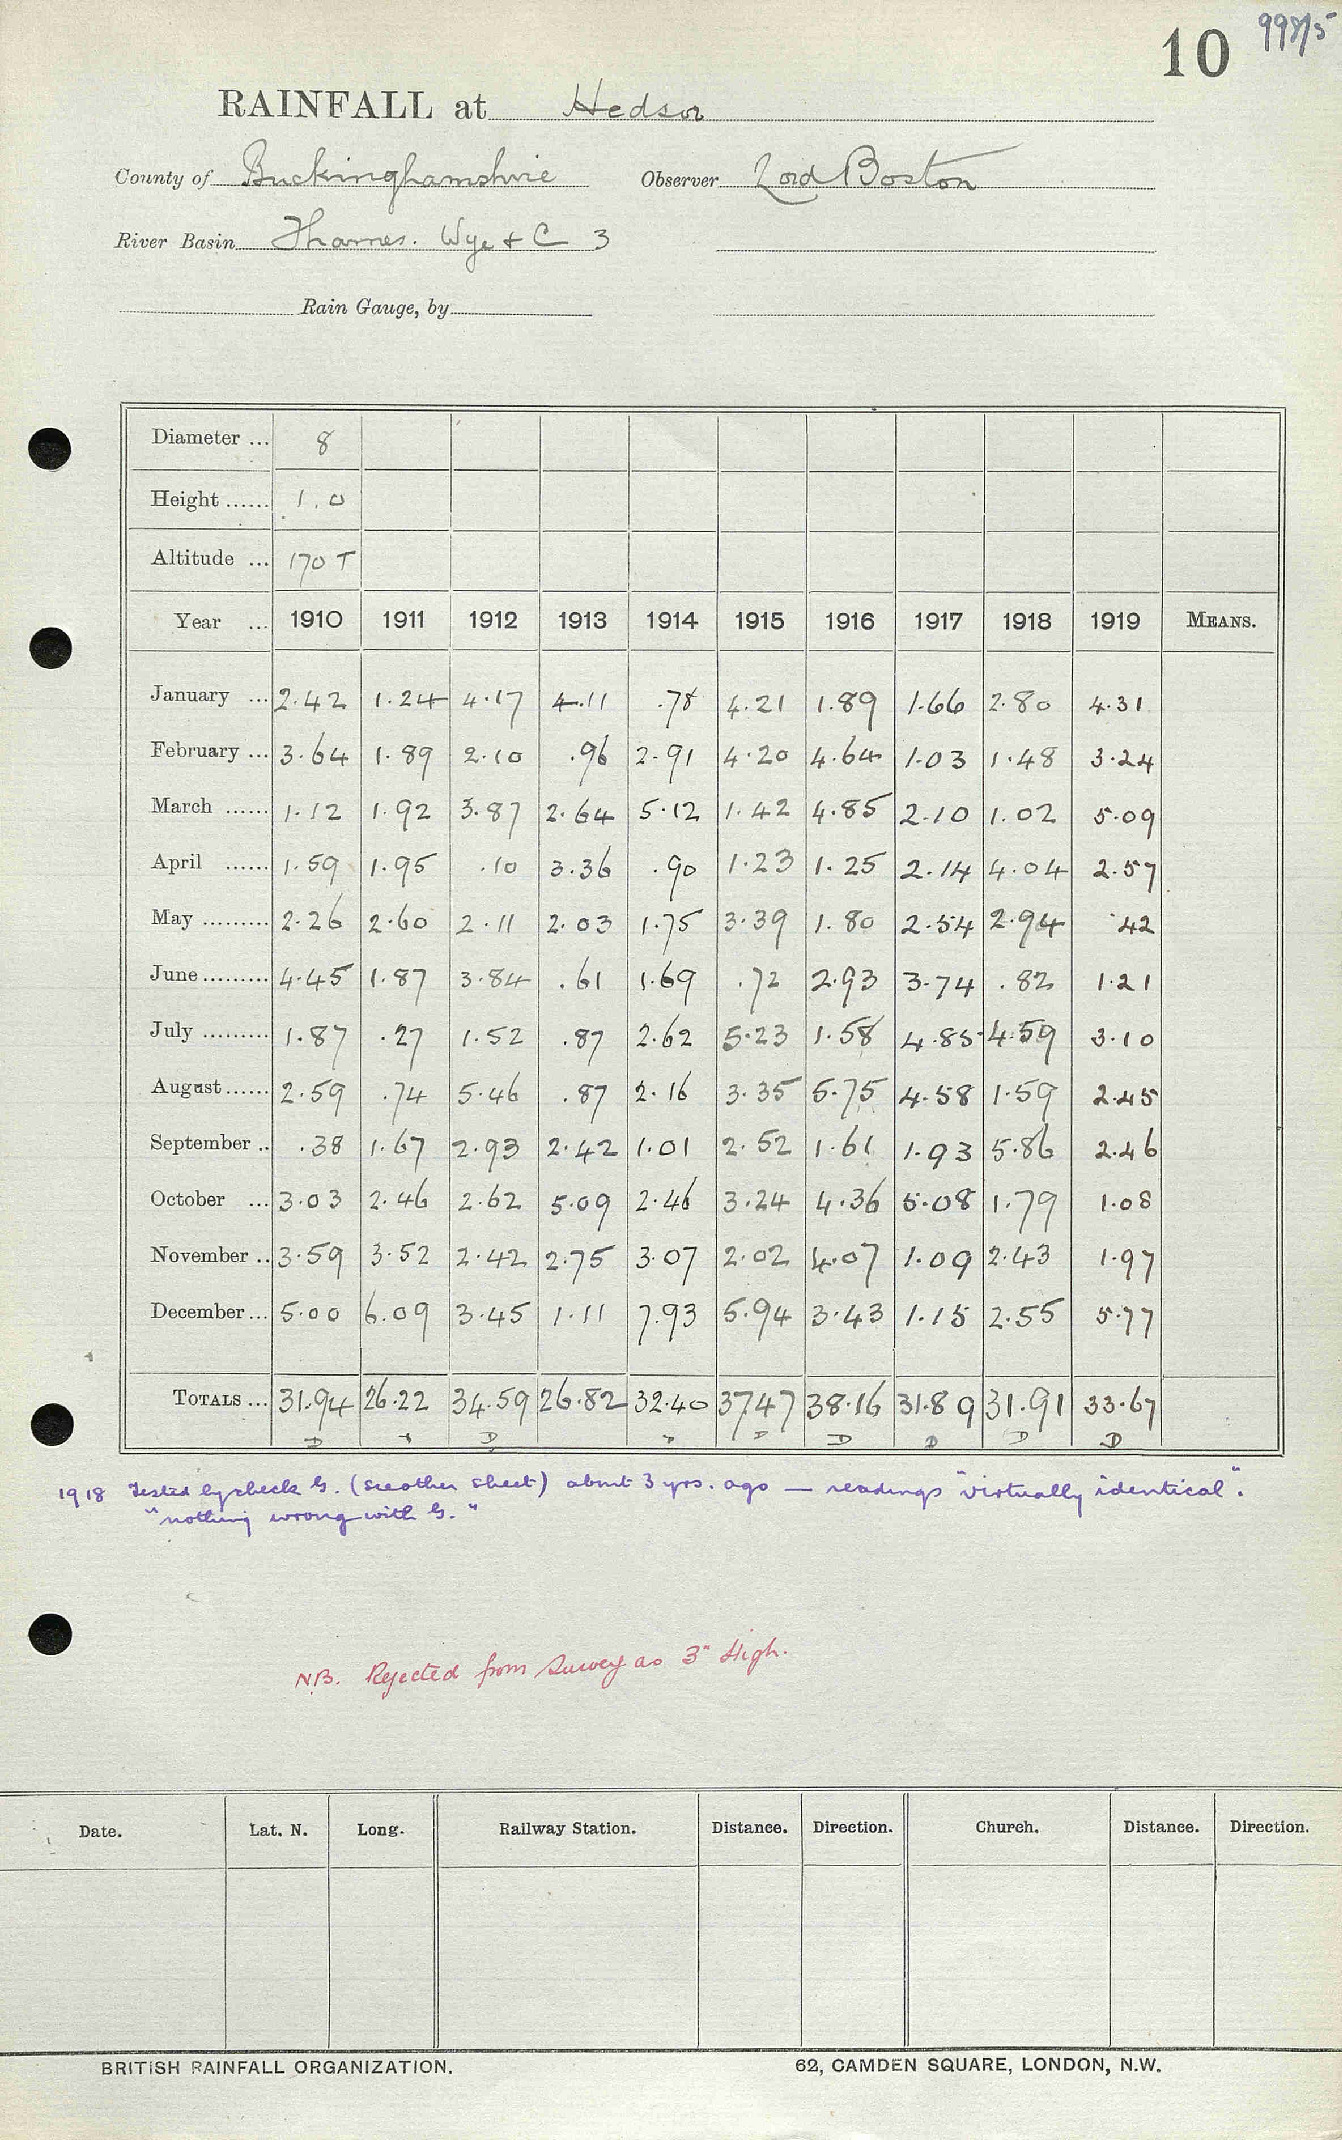 10 998/5
RAINFALL at Hedsor
County of Buckinghamshire Observer Lord Boston
River Basin Thames. Wye + C 3
Rain Gauge, by
Diameter ... 8
Height ...... 1.0
Altitude ... 170 T
Year ... 1910 1911 1912 1913 1914 1915 1916 1917 1918 1919 MEANS.
January ... 2.42 1.24 4.17 4.11 .78 4.21 1.89 1.66 2.80 4.31
February ... 3.64 1.89 2.10 .96 2.91 4.20 4.64 1.03 1.48 3.24
March ...... 1.12 1.92 3.87 2.64 5.12 1.42 4.85 2.10 1.02 5.09
April ...... 1.59 1.95 .10 3.36 .90 1.23 1.25 2.14 4.04 2.57
May ......... 2.26 2.60 2.11 2.03 1.75 3.39 1.80 2.54 2.94 .42
June ......... 4.45 1.87 3.84 .61 1.69 .72 2.93 3.74 .82 1.21
July ......... 1.87 .27 1.52 .87 2.62 5.23 1.58 4.85 4.59 3.10
August ...... 2.59 .74 5.46 .87 2.16 3.35 5.75 4.58 1.59 2.45
September .. .38 1.67 2.93 2.42 1.01 2.52 1.61 1.93 5.86 2.46
October ... 3.03 2.46 2.62 5.09 2.46 3.24 4.36 5.08 1.79 1.08
November .. 3.59 3.52 2.42 2.75 3.07 2.02 4.07 1.09 2.43 1.97
December ... 5.00 6.09 3.45 1.11 7.93 5.94 3.43 1.15 2.55 5.77
TOTALS ... 31.94 26.22 34.59 26.82 32.40 37.47 38.16 31.89 31.91 33.67
D D D D D D D
1918 Tested by check G. (see other sheet) about 3 yrs. ago — readings "virtually identical".
"nothing wrong with G."
N.B. Rejected from Survey as 3" High.
Date. Lat. N. Long. Railway Station. Distance. Direction. Church. Distance. Direction.
BRITISH RAINFALL ORGANIZATION. 62, CAMDEN SQUARE, LONDON, N.W.